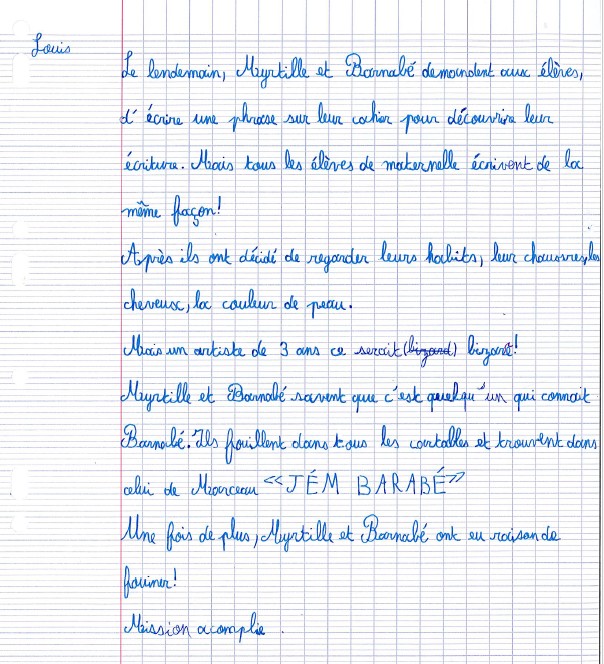 Louis
Le lendemain, Myrtille et Barnabé demandent aux élèves,
d'écrire une phrase sur leur cahier pour découvrire leur
écriture. Mais tous les élèves de maternelle écrivent de la
même façon!
Après ils ont décidé de regarder leurs habits, leur chaussures, les
cheveux, la couleur de peau.
Mais un artiste de 3 ans ce serait (bizard) bizart!
Myrtille et Barnabé savent que c'est quelqu'un qui connait
Barnabé. Ils fouillent dans tous les cartalles et trouvent dans
celui de Marceau «JÉM BARABÉ»
Une fois de plus, Myrtille et Barnabé ont eu raison de
fouiner!
Mission acomplie.